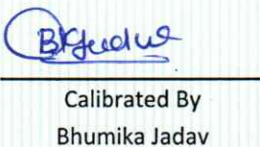 Calibrated By
Bhumika Jadav